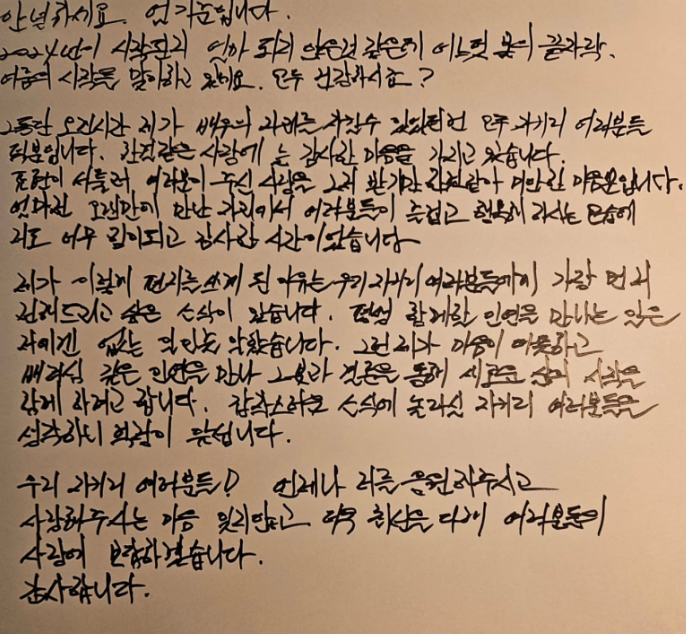 안녕하세요. 엄기준입니다.
2024년이 시작된지 얼마 되지 않은것 같은데 어느덧 봄의 끝자락.
여름의 시작을 맞이하고 있네요. 모두 건강하시죠?
그동안 오랜시간 제가 배우의 자리를 지킬수 있었던건 모두 지키리 여러분들
덕분입니다. 한결같은 사랑에 늘 감사한 마음을 가지고 있습니다.
표현이 서툴러 여러분이 주신 사랑을 그저 받기만 한것같아 미안한 마음뿐입니다.
얼마전 오랜만에 만난 자리에서 여러분들이 즐겁고 행복해 하시는 모습에
저도 너무 힘이되고 감사한 시간이었습니다
제가 이렇게 편지를 쓰게 된 이유는 우리 지키리 여러분들께 가장 먼저
전해드리고 싶은 소식이 있습니다. 평생 함께할 인연을 만나는 일은
저에겐 없는 일인줄 알았습니다. 그런 제가 마음이 따뜻하고
배려심 깊은 인연을 만나 그분과 결혼을 통해 새로운 삶의 시작을
함께 하려고 합니다. 갑작스러운 소식에 놀라실 지키리 여러분들을
생각하니 희람이 뭉칩니다.
우리 지키리 여러분들! 언제나 저를 응원해주시고
사랑해주시는 마음 잊지않고 더욱 최선을 다해 여러분들의
사랑에 보답하겠습니다.
감사합니다.